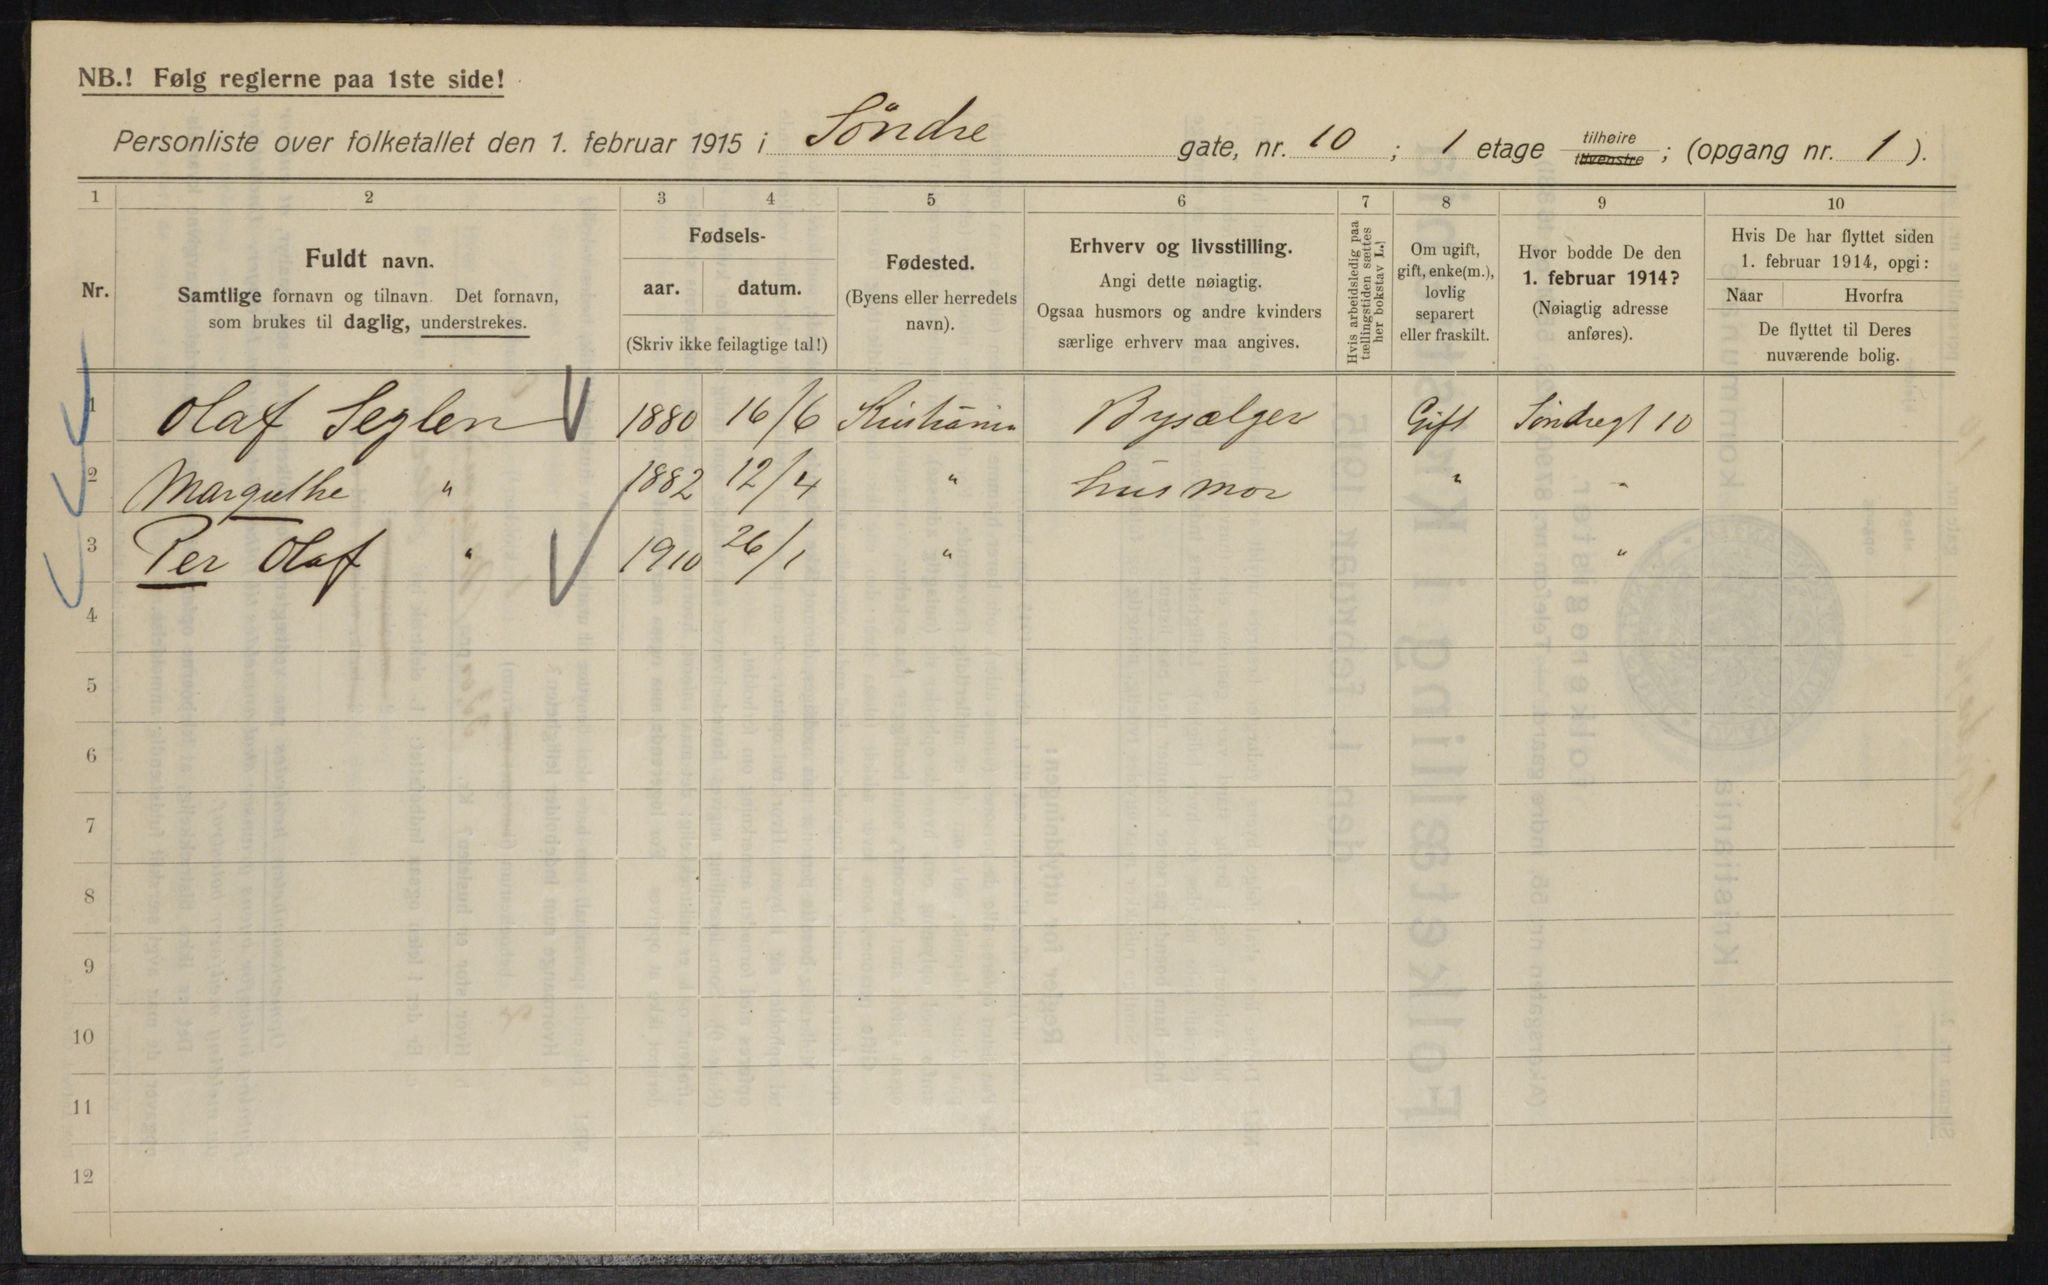 NB.! Følg reglerne paa 1ste side!
Personliste over folketallet den 1. februar 1915 i Søndre gate, nr. 10 ; 1 etage tilhøire tilvenstre ; (opgang nr. 1 ).
1 2 3 4 5 6 7 8 9 10
Nr.
Fuldt navn.
Samtlige fornavn og tilnavn. Det fornavn,
som brukes til daglig, understrekes.
Fødsels-
aar. datum.
(Skriv ikke feilagtige tal!)
Fødested.
(Byens eller herredets
navn).
Erhverv og livsstilling.
Angi dette nøiagtig.
Ogsaa husmors og andre kvinders
særlige erhverv maa angives.
Hvis arbeidsledig paa
tællingstiden sættes
her bokstav L.)
Om ugift,
gift, enke(m.),
lovlig
separert
eller fraskilt.
Hvor bodde De den
1. februar 1914?
(Nøiagtig adresse
anføres).
Hvis De har flyttet siden
1. februar 1914, opgi:
Naar Hvorfra
De flyttet til Deres
nuværende bolig.
1 Olaf Seglen 1880 16/6 Kristiania Bysælger Gift Søndregt 10
2 Margrethe " 1882 12/4 " husmor " "
3 Per Olaf " 1910 26/1 " "
4
5
6
7
8
9
10
11
12